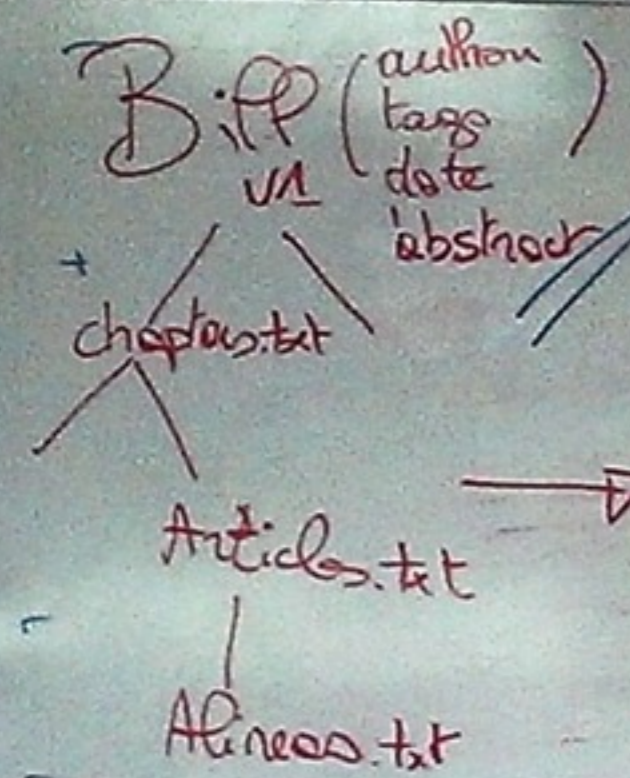 Bill (author
tags
date
abstract)
V1
+
chapters.txt
Articles.txt
Alineas.txt